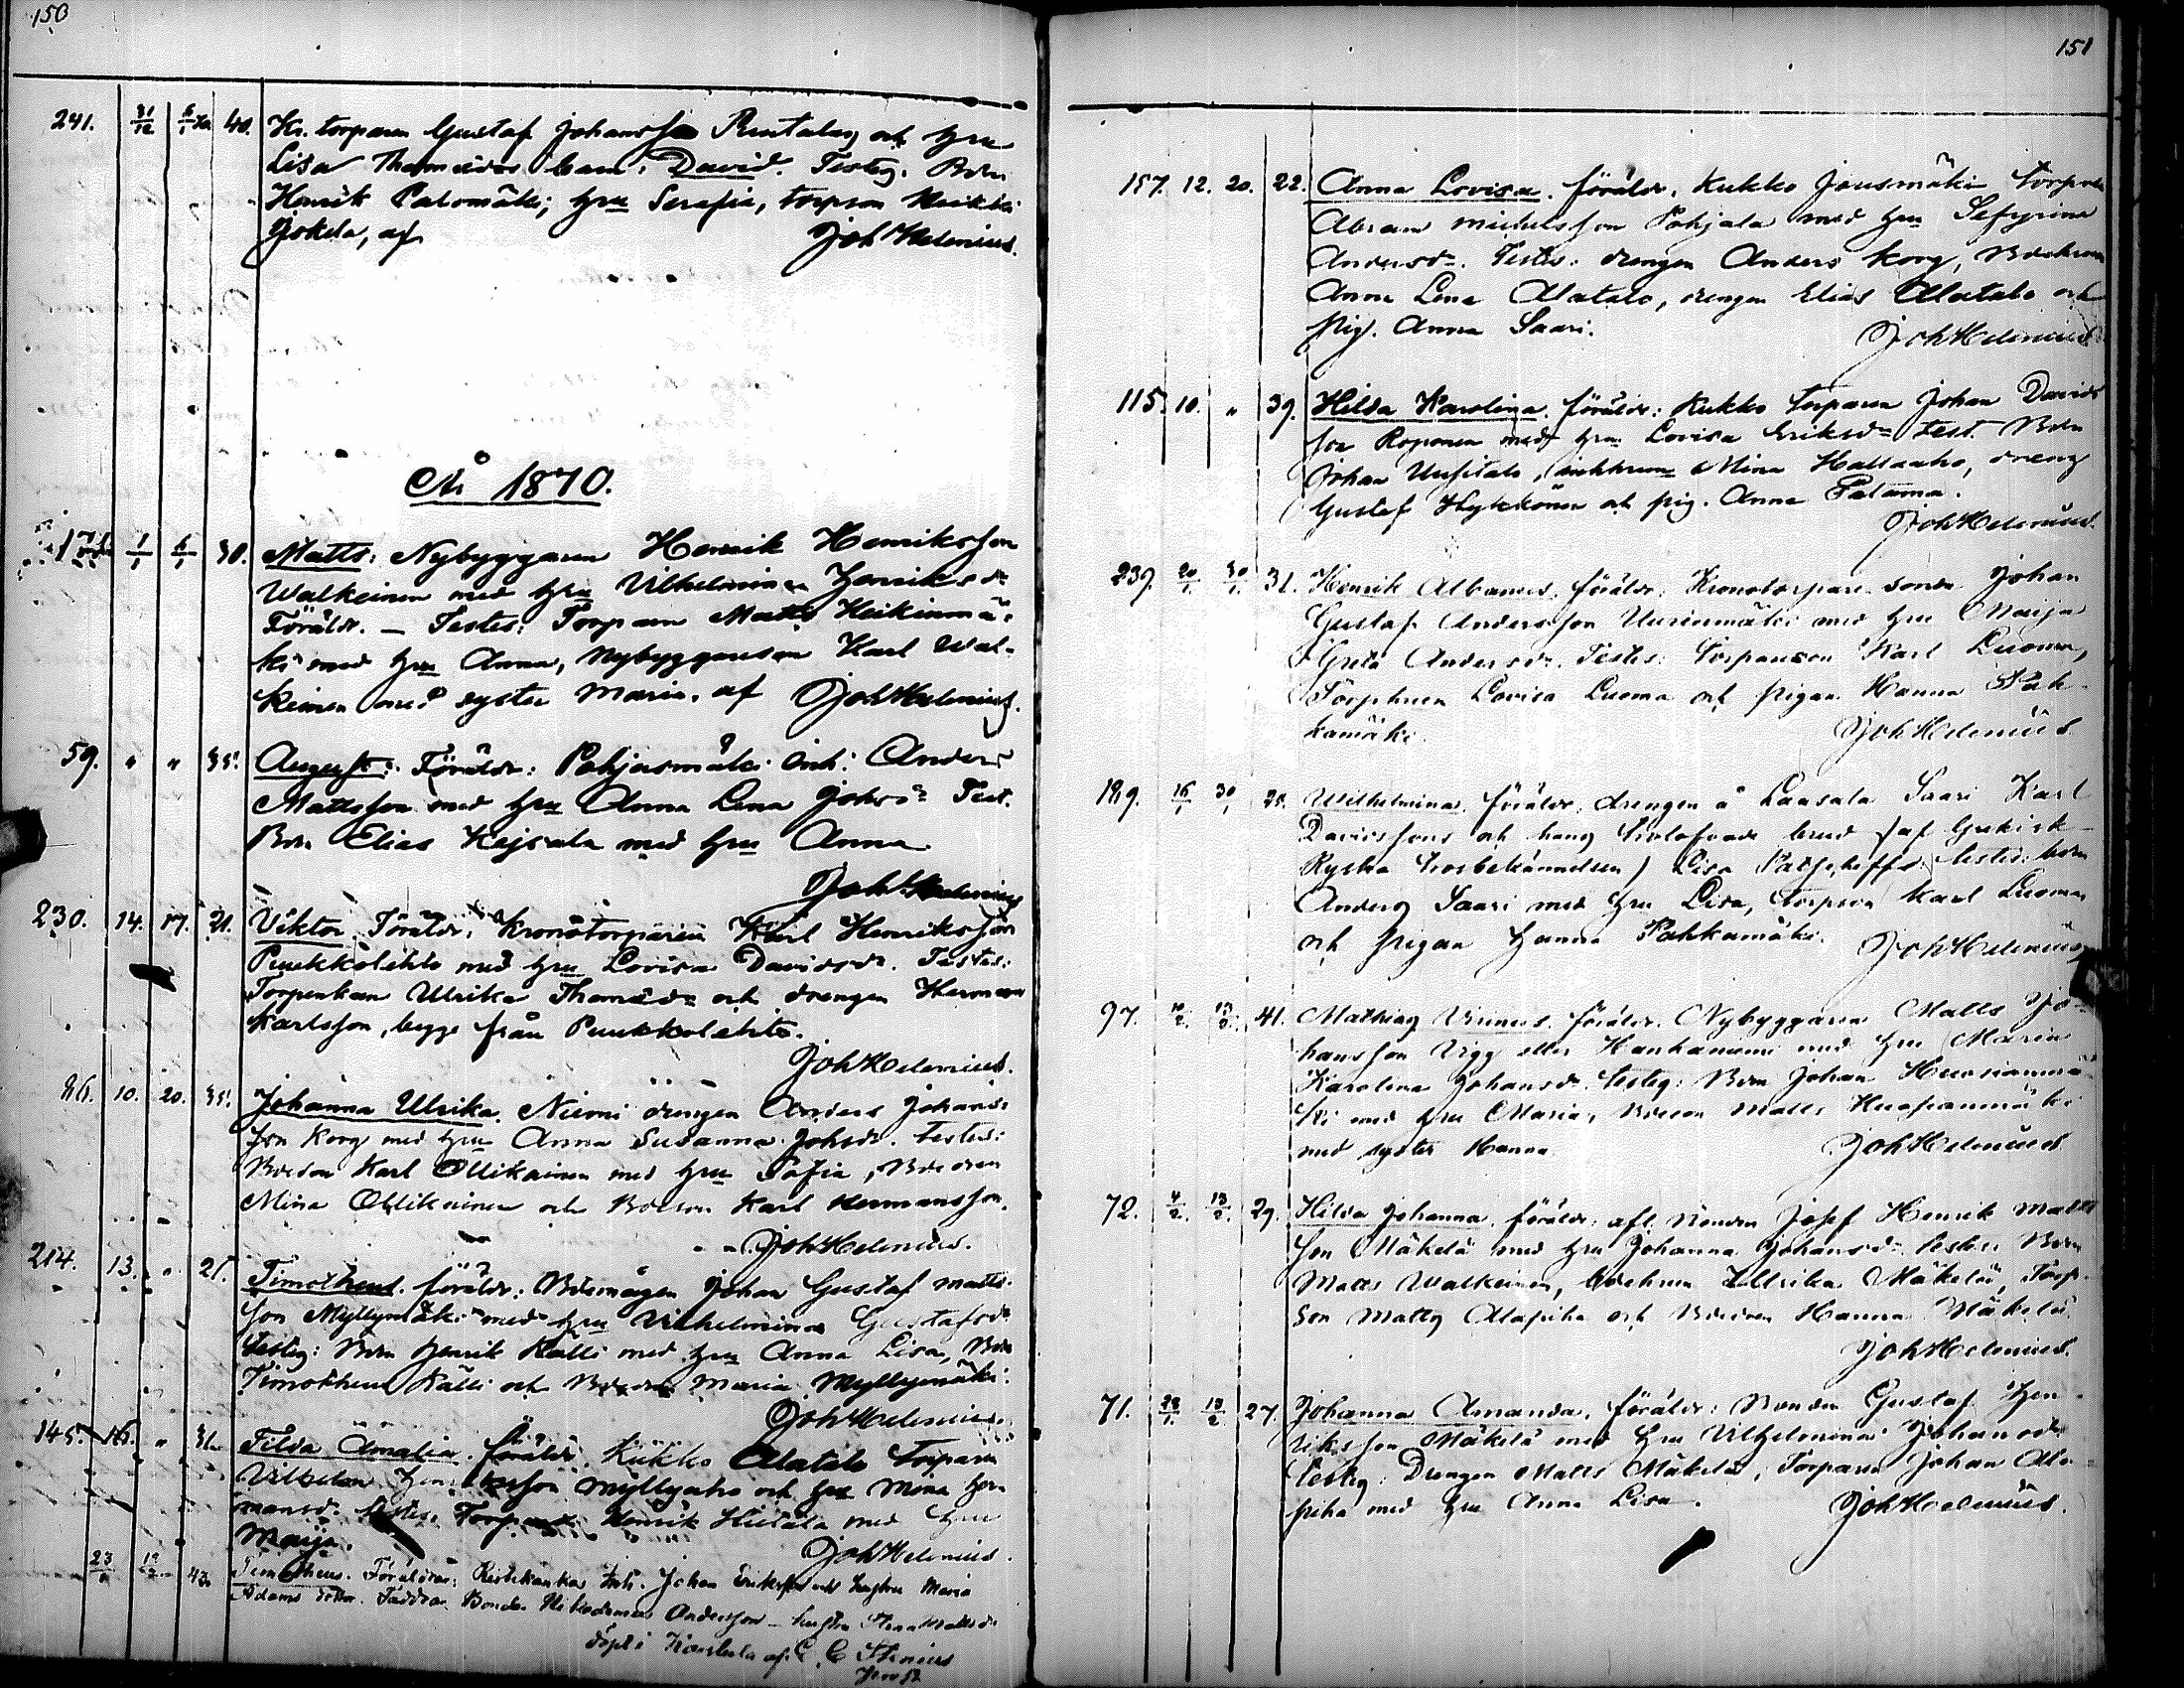 150
241. 31/12 6/1 70 40. Kr. torparen Gustaf Johansson Rentala och hru
Lisa Thomasdr barn: David. Testes. Bdn
Henrik Palomäki, hru Serafia, torpson Heikki
Jokela, af Joh Helenius.
År 1870.
1/1 6/1 30. Matts: Nybyggaren Henrik Henriksson
Walkeinen med hru Vilhelmina Henriksdr
Föräldr. — Testes: Torparen Matts Heikinmä-
ki med hru Anna, Nybyggareson Karl Wal-
keinen med syster Maria. af Joh Helenius.
59. " " 35. August: Föräldr: Pohjasmäki Inh: Anders
Mattsson med hru Anna Lena Johsdr Test.
Bdn Elias Kejsala med hru Anna
Joh Helenius
230. 14. 17. 21. Viktor. Föräldr: Kronotorparen Karl Henriksson
Puukkolehto med hru Lovisa Davidsdr. Testes:
Torpenkan Ulrika Thomasdr och drengen Herman
Karlsson, begge från Puukkolehto.
Joh Helenius.
86. 10. 20. 35. Johanna Ulrika. Niemi drengen Anders Johans-
son Korg med hru Anna Susanna Johsdr. Testes:
Bdeson Karl Ollikainen med hru Sofia, Bdedren
Mina Ollikainen och Bdeson Karl Hermansson.
Joh Helenius.
214. 13. " 21. Timotheus. föräldr: Bdemågen Johan Gustaf Matts-
son Myllymäki med hru Vilhelmina Gustafsdr
Testes: Bdn Henrik Källi med hru Anna Lisa, Bdn
Timotheus Källi och Bdedren Maria Myllymäki.
Joh Helenius.
145. 16. " 31. Tilda Amalia. föräldr. Kukko Alatalo torparen
Vilhelm Henriksson Myllyaho och hru Mina Her-
mansdr. Testes: Torparen Henrik Hietala med hru
Maija. Joh Helenius.
23/1 13/2 43. Timotheus. Föräldrar: Inh. Johan Eriksson och hustru Maria
Adams dotter. Faddrar Bonden Nikodemus Andersson – hustru Stina Mattsdr
döpt i Karstula af C. C. Stenius
151
157. 12. 20. 22. Anna Lovisa. föräldr. Kukko Jousmäki torparen
Abram Michelsson Pohjala med hru Sefyrina
Andersdr. Testes: drengen Anders Korg, Bdehrun
Anna Lena Alatalo, drengen Elias Alatalo och
pig. Anna Saari. Joh Helenius
115. 10. " 39. Hilda Karolina. föräldr: Kukko torparen Johan Davids-
son Roponen med hru Lovisa Eriksdr test. Bdn
Johan Uusitalo, Mina Hallaaho, dreng
Gustaf Hykkönen och pig. Anna Palama.
Joh Helenius.
239. 20/1 30/1 31. Henrik Albanus. föräldr: Kronotorpare sonen Johan
Gustaf Andersson Uurinmäki med hru Maija
Greta Andersdr. Testes: torpareson Karl Luoma,
Torphrun Lovisa Luoma och pigan Hanna Pah-
kamäki. Joh Helenius.
189. 16/1 30/1 28. Wilhelmina. föräldr: drengen å Laasala Saari Karl
Davidssons och hans trolofvade brud (af Grekisk-
Ryska trosbekännelsen) Lisa testes: bdn
Anders Saari med hru Lisa, torpson Karl Luoma
och pigan Hanna Pahkamäki. Joh Helenius
97. 10/2. 13/2. 41. Mathias Virinus. föräldr. Nybyggaren Matts Jo-
hansson Vigg eller Hankaniemi med hru Maria
Karolina Johansdr. Testes: Bdn Johan Huosianmä-
ki med hru Maria, Bdeson Matts Huosianmäki
med syster Hanna. Joh Helenius
72. 4/2. 13/2. 29. Hilda Johanna. föräldr: afl. Bonden Josef Henrik Matts
son Mäkelä med hru Johanna Johansdr. Testes: Bdn
Matts Walkeinen, bdehrun Ullrika Mäkelä, Torp-
son Matts Alapiha och Bdedren Hanna Mäkelä.
Joh Helenius.
71. 28/1. 13/2. 27. Johanna Amanda. föräldr: Bonden Gustaf Hen-
riksson Mäkelä med hru Vilhelmina Johansdr
Testes: Drengen Matts Mäkelä, Torparen Johan Ala-
piha med hru Anna Lisa. Joh Helenius.